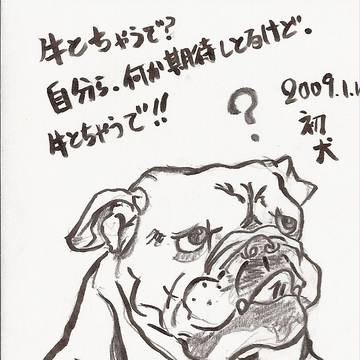 牛とちゃうで?
自分ら、何か期待しとるけど。
牛とちゃうで!!
?
2009.1.1
初
犬